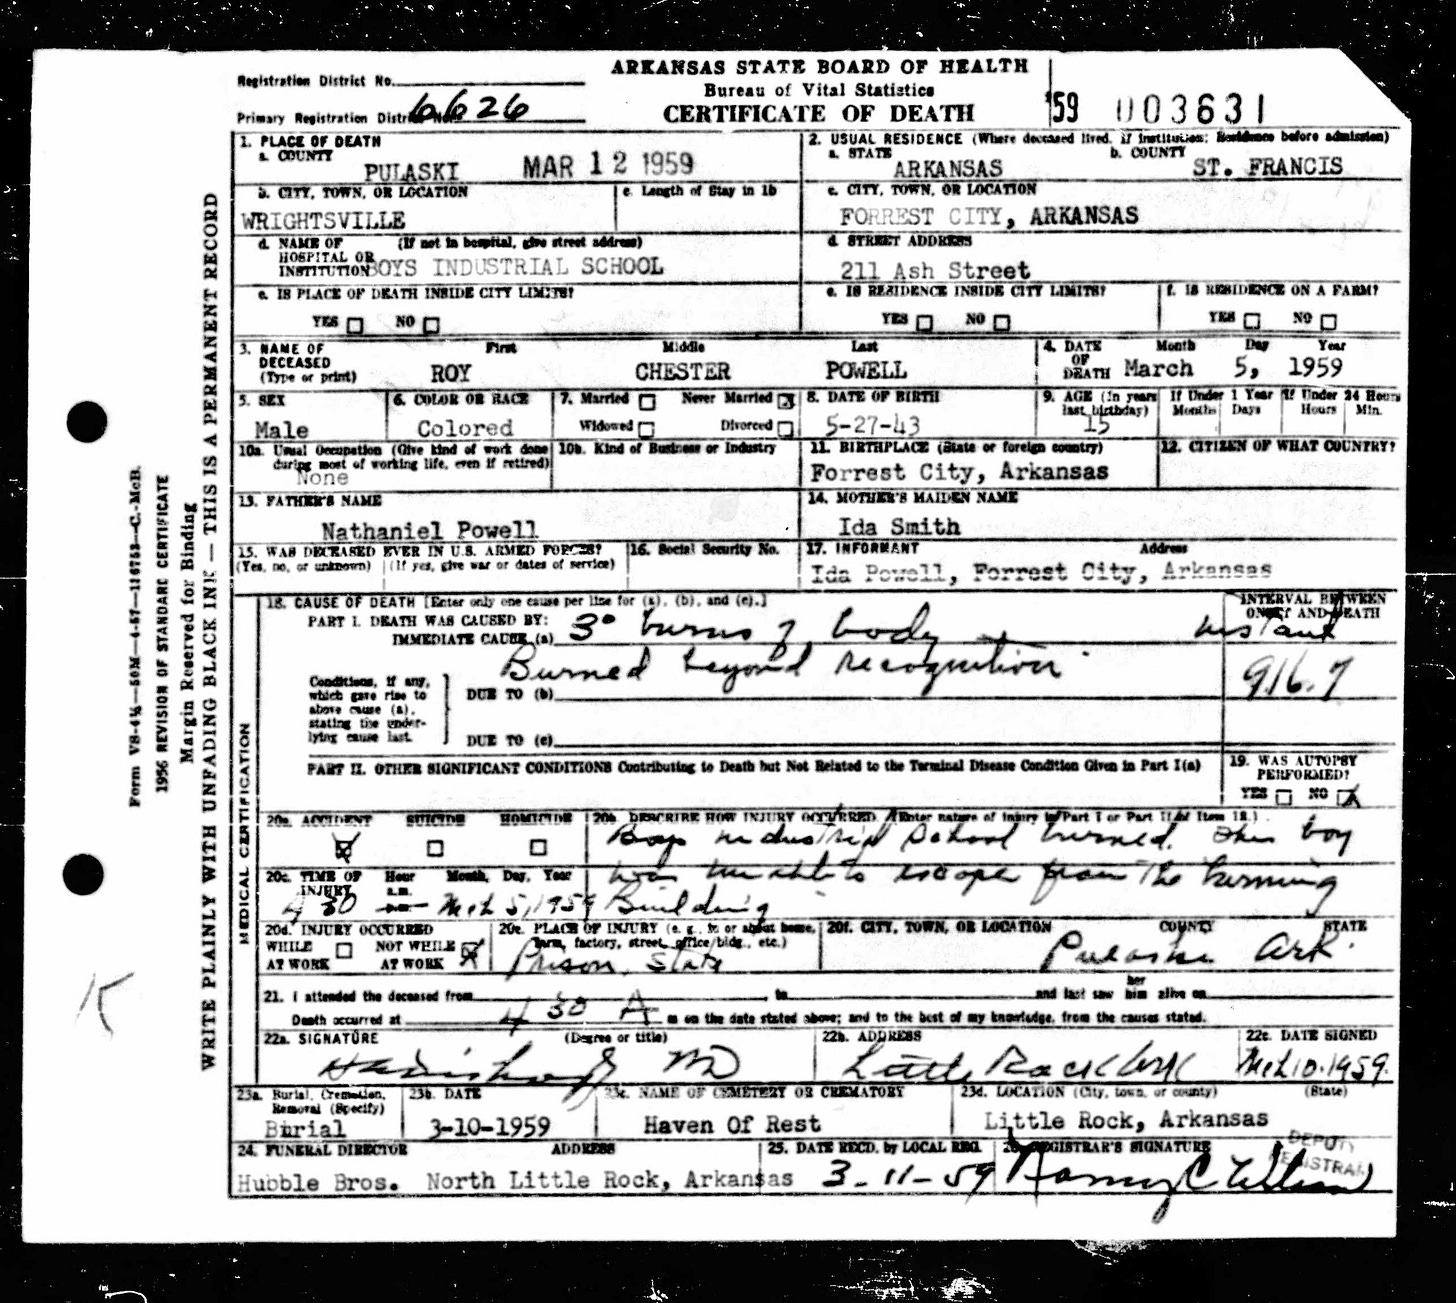 ARKANSAS STATE BOARD OF HEALTH
Bureau of Vital Statistics
CERTIFICATE OF DEATH
Registration District No.
Primary Registration District No. 6626
159 003631
1. PLACE OF DEATH
a. COUNTY
PULASKI MAR 12 1959
b. CITY, TOWN, OR LOCATION
c. Length of Stay in 1b
WRIGHTSVILLE
d. NAME OF HOSPITAL OR INSTITUTION (If not in hospital, give street address)
BOYS INDUSTRIAL SCHOOL
e. IS PLACE OF DEATH INSIDE CITY LIMITS?
YES NO
2. USUAL RESIDENCE (Where deceased lived. If institution: Residence before admission)
a. STATE b. COUNTY
ARKANSAS ST. FRANCIS
c. CITY, TOWN, OR LOCATION
FORREST CITY, ARKANSAS
d. STREET ADDRESS
211 Ash Street
e. IS RESIDENCE INSIDE CITY LIMITS?
YES NO
f. IS RESIDENCE ON A FARM?
YES NO
3. NAME OF DECEASED (Type or print)
First Middle Last
ROY CHESTER POWELL
4. DATE OF DEATH Month Day Year
March 5, 1959
5. SEX
Male
6. COLOR OR RACE
Colored
7. Married Never Married X
Widowed Divorced
8. DATE OF BIRTH
5-27-43
9. AGE (in years last birthday)
15
If Under 1 Year
Months Days
If Under 24 Hours
Hours Min.
10a. Usual Occupation (Give kind of work done during most of working life, even if retired)
None
10b. Kind of Business or Industry
11. BIRTHPLACE (State or foreign country)
Forrest City, Arkansas
12. CITIZEN OF WHAT COUNTRY?
13. FATHER'S NAME
Nathaniel Powell
14. MOTHER'S MAIDEN NAME
Ida Smith
15. WAS DECEASED EVER IN U.S. ARMED FORCES?
(Yes, no, or unknown) (If yes, give war or dates of service)
16. Social Security No.
17. INFORMANT Address
Ida Powell, Forrest City, Arkansas
MEDICAL CERTIFICATION
18. CAUSE OF DEATH [Enter only one cause per line for (a), (b), and (c).]
INTERVAL BETWEEN ONSET AND DEATH
PART I. DEATH WAS CAUSED BY:
IMMEDIATE CAUSE (a) 3° burns of body instant
Burned beyond recognition 916.7
Conditions, if any, which gave rise to above cause (a), stating the underlying cause last.
DUE TO (b)
DUE TO (c)
PART II. OTHER SIGNIFICANT CONDITIONS Contributing to Death but Not Related to the Terminal Disease Condition Given in Part I(a)
19. WAS AUTOPSY PERFORMED?
YES NO X
20a. ACCIDENT X SUICIDE HOMICIDE
20b. DESCRIBE HOW INJURY OCCURRED. (Enter nature of injury in Part I or Part II of Item 18.)
Boys industrial School burned. This boy
was unable to escape from the burning
Building
20c. TIME OF INJURY Hour a.m. Month, Day, Year
4 30 Mch 5, 1959
20d. INJURY OCCURRED
WHILE AT WORK NOT WHILE AT WORK X
20e. PLACE OF INJURY (e. g., in or about home, farm, factory, street, office/bldg., etc.)
Prison, State
20f. CITY, TOWN, OR LOCATION COUNTY STATE
Pulaski Ark.
21. I attended the deceased from to and last saw her him alive on
Death occurred at 4 30 A m on the date stated above; and to the best of my knowledge, from the causes stated.
22a. SIGNATURE (Degree or title)
MD
22b. ADDRESS
Little Rock Ark
22c. DATE SIGNED
Mch 10-1959.
23a. Burial, Cremation, Removal (Specify)
Burial
23b. DATE
3-10-1959
23c. NAME OF CEMETERY OR CREMATORY
Haven Of Rest
23d. LOCATION (City, town, or county) (State)
Little Rock, Arkansas
24. FUNERAL DIRECTOR ADDRESS
Hubble Bros. North Little Rock, Arkansas
25. DATE RECD. by LOCAL REG.
3-11-59
26. REGISTRAR'S SIGNATURE
DEPUTY REGISTRAR
Form VS-4½—50M—4-57—116753—C.-McB.
1956 REVISION OF STANDARD CERTIFICATE
Margin Reserved for Binding
WRITE PLAINLY WITH UNFADING BLACK INK — THIS IS A PERMANENT RECORD
K